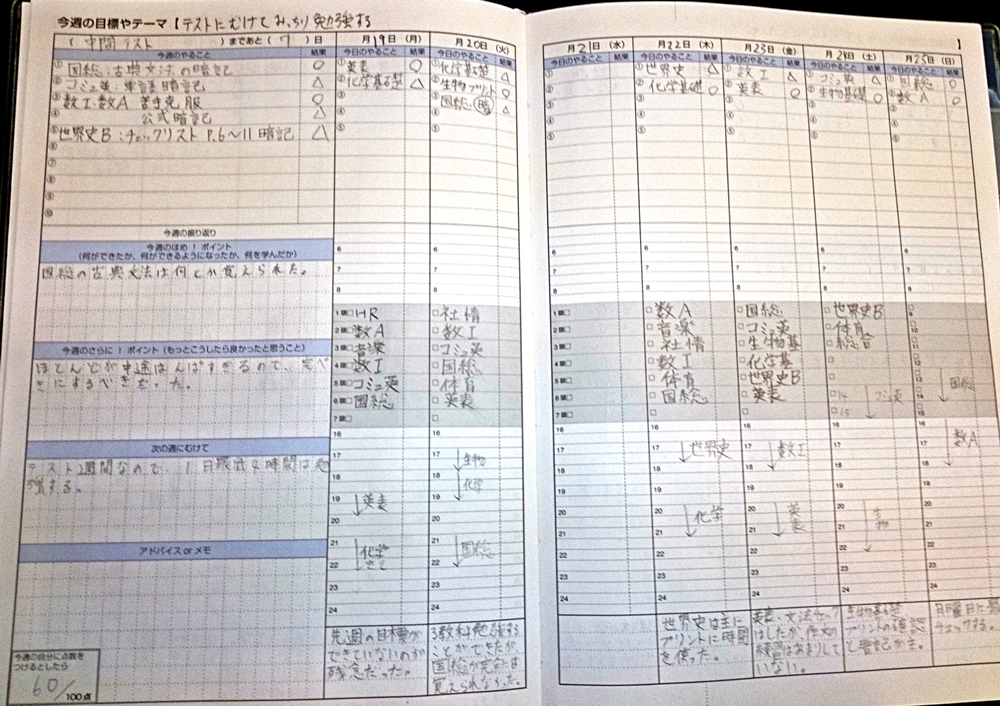 今週の目標やテーマ【テストにむけてみっちり勉強する
】
( 中間テスト )まであと( 7 )日
今週のやること 結果
① 国総:古典文法の暗記 ○
② コミュ英:単語暗記 △
③ 数I・数A 苦手克服 ○
④ 公式暗記 △
⑤ 世界史B:チェックリスト P.6〜11暗記 △
⑥
⑦
⑧
⑨
⑩
今週の振り返り
今週のほめ!ポイント
(何ができたか、何ができるようになったか、何を学んだか)
国総の古典文法は何とか覚えられた。
今週のさらに!ポイント(もっとこうしたら良かったと思うこと)
ほとんどが中途はんぱすぎるので、完ぺ
きにするべきだった。
次の週にむけて
テスト週間なので、1日最低4時間は勉
強する。
アドバイスorメモ
今週の自分に点数を
つけるとしたら
60/100点
月19日(月)
今日のやること 結果
① 英表 ○
② 化学基礎 △
③
④
⑤
6
7
8
1限□HR
2限□数A
3限□音楽
4限□数I
5限□コミュ英
6限□国総
7限□
16
17
18
19
英表
20
21
化学
22
23
24
先週の目標が
できていないのが
残念だった。
月20日(火)
今日のやること 結果
① 化学基礎 △
② 生物プリント ○
③ 国総(暗) △
④
⑤
6
7
8
□社情
□数I
□コミュ英
□国総
□体育
□英表
□
16
17
生物
18
化学
19
20
21
国総
22
23
24
3教科勉強する
ことができたが、
国総が完全には
覚えられなかった。
月21日(水)
今日のやること 結果
①
②
③
④
⑤
6
7
8
1限□
2限□
3限□
4限□
5限□
6限□
7限□
16
17
18
19
20
21
22
23
24
月22日(木)
今日のやること 結果
① 世界史 △
② 化学基礎 ○
③
④
⑤
6
7
8
□数A
□音楽
□社情
□数I
□体育
□国総
□
16
17
世界史
18
19
20
化学
21
22
23
24
世界史は主に
プリントに時間
を使った。
月23日(金)
今日のやること 結果
① 数I △
② 英表 ○
③
④
⑤
6
7
8
□国総
□コミュ英
□生物基
□化学基
□世界史B
□英表
□
16
17
数I
18
19
20
英表
21
22
23
24
英表、文法チェック
はしたが、作文の
練習はあまりして
いない。
月24日(土)
今日のやること 結果
① コミュ英 △
② 生物基礎 ○
③
④
⑤
6
7
8
□世界史B
□体育
□総合
□
□
□14 コミュ英
□15
16
17
18
19
20
生物
21
22
23
24
生物基礎
プリントの確認
月25日(日)
今日のやること 結果
① 国総 ○
② 数A ○
③
④
⑤
6
7
8
9
10
11
12
13
国総
14
15
16
17
数A
18
19
20
21
22
23
24
月曜日に
チェックする。